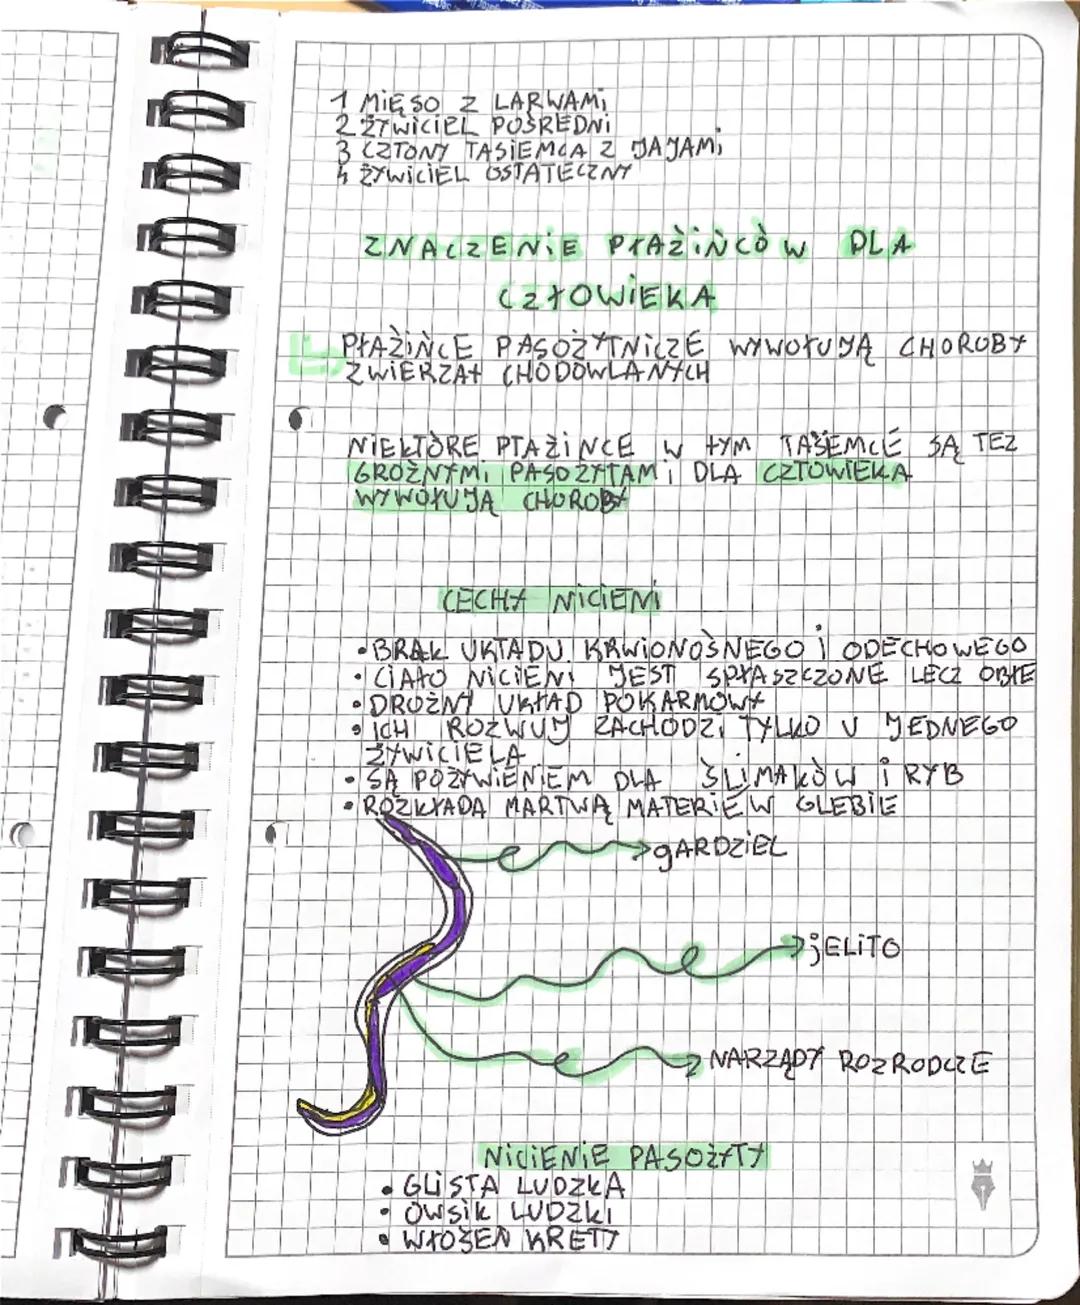 1 MIĘSO Z LARWAMI
2 ŻYWICIEL POŚREDNI
3 CZŁONY TASIEMCA Z JAJAMI
4 ŻYWICIEL OSTATECZNY
ZNACZENIE PŁAZIŃCÓW DLA
CZŁOWIEKA
PŁAZIŃCE PASOŻYTNICZE WYWOŁUJĄ CHOROBY
ZWIERZĄT CHODOWLANYCH
NIEKTÓRE PŁAZIŃCE W TYM TASIEMCE SĄ TEŻ
GROŹNYMI PASOŻYTAMI DLA CZŁOWIEKA
WYWOŁUJĄ CHOROBY
CECHY NICIENI
• BRAK UKŁADU KRWIONOŚNEGO I ODECHOWEGO
• CIAŁO NICIENI JEST SPŁASZCZONE LECZ OBIE
• DROŻNY UKŁAD POKARMOWY
• ICH ROZWUJ ZACHODZI TYLKO U JEDNEGO
ŻYWICIELA
• SĄ POŻYWIENIEM DLA ŚLIMAKÓW I RYB
• ROZKŁADA MARTWĄ MATERIĘ W GLEBIE
gARDZIEL
jELITO
NARZĄDY ROZRODCZE
NICIENIE PASOŻYTY
• GLISTA LUDZKA
• OWSIK LUDZKI
• WŁOSEŃ KRĘTY